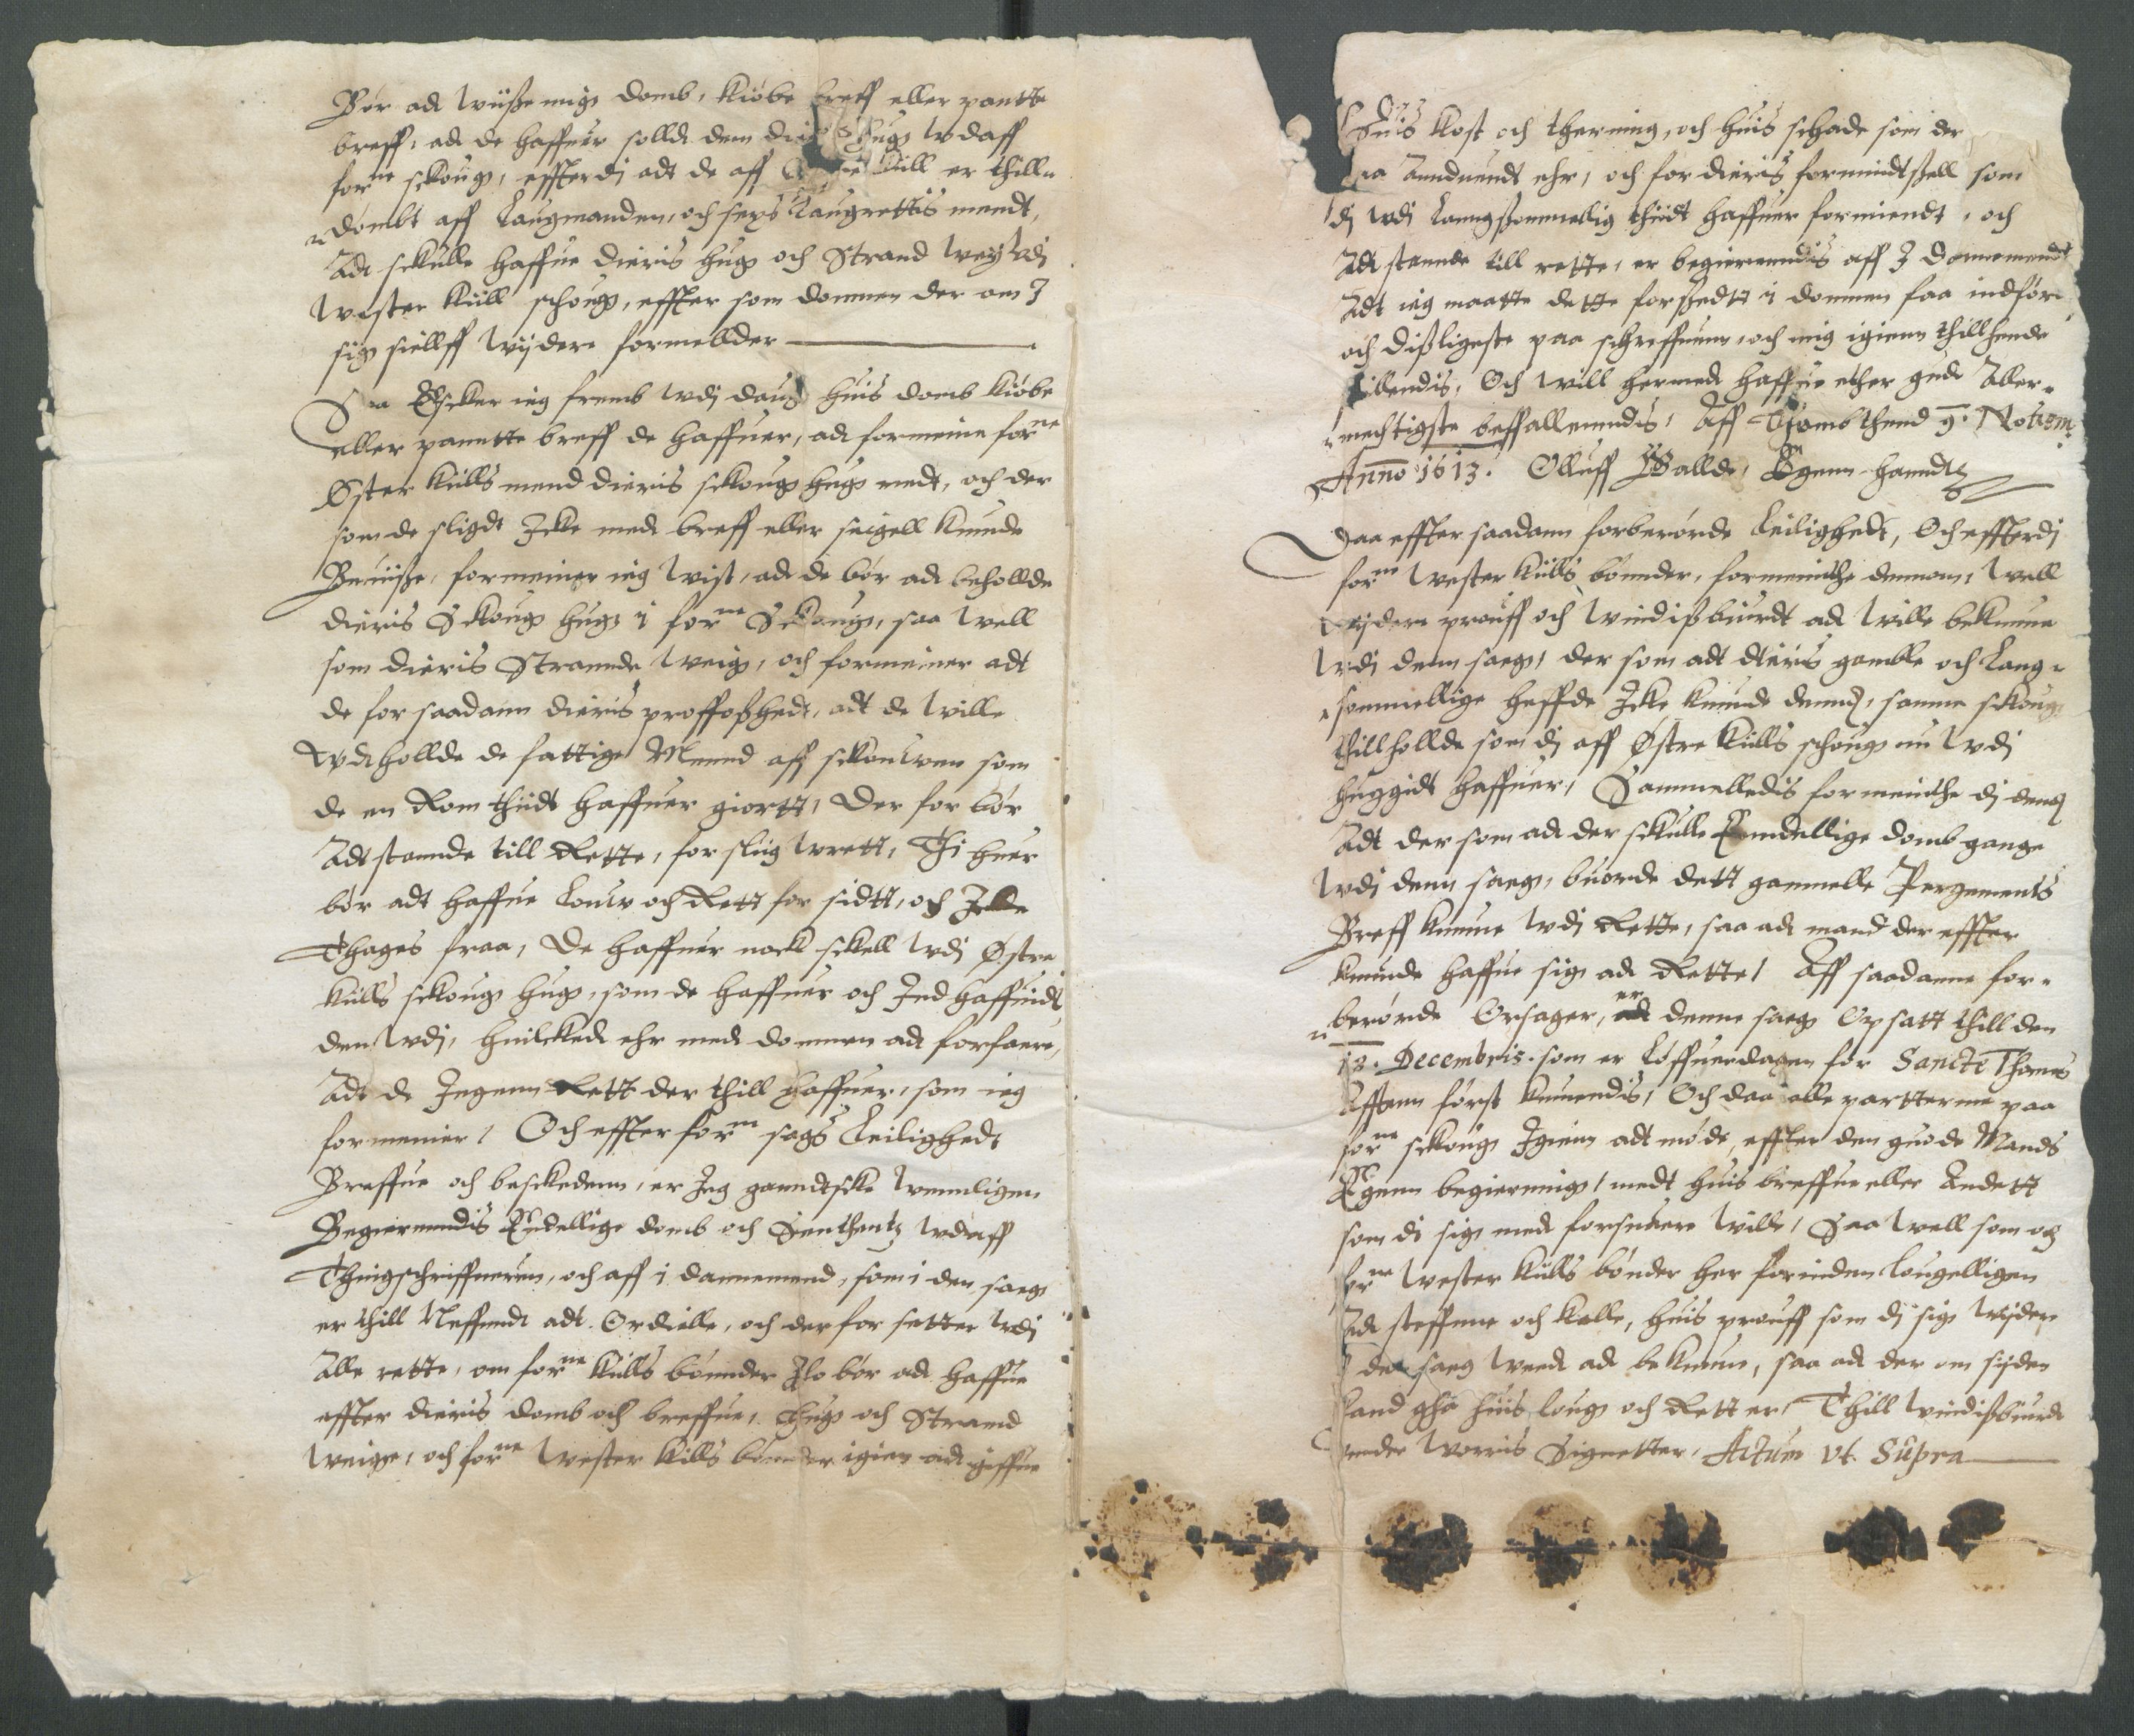 Bør adt wiiße mig domb, kiøbe breff eller pantte
breff, adt de haffuer solldt dem hug wdaff
forne schoug, effterdj adt de aff kiill er thill
dømbt aff Laugmanden, och sexs Laugrettis mendt,
Adt schulle haffue dieris hug och Strand wey wdj
wester kiill schoug, effter som dommen der om J
sig siellff wijdere formellder
Saa Escker ieg fremb wdj daug huis domb kiøbe
eller panntte breff de haffuer, adt formeine forne
Øster kiills mend dieris schoug hug medt, och der
som de sligdt Icke medt breff eller seigell kunde
Beuiiße, formeiner ieg wist, adt de bør adt beholde
dieris Schoug hug i forne Schoug, saa well
som dieris Strannde weig, och formeiner adt
de for saadann dieris proffoßhedt, adt de wille
wdhollde de fattige Mennd aff schouwen som
de en Rom thiidt haffuer giortt, Der for bør
Adt stannde till Rette, for sliig wrett, Thi huer
bør adt haffue Louw och Rett for sidtt, och Icke
Thages fraa, De haffuer nock schell wdj Østre
kiills schoug hug, som de haffuer och Ind haffuidt
den wdj, huilckedt ehr medt dommen adt forfaere,
Adt de Ingenn Rett der thill haffuer, som ieg
formenier, Och effter forne sags Leilighedt
Breffue och besckedenn, er Jeg ganndtscke wennligen
Begierenndis Endellige domb och Senthentz wdaff
Thingschriffueren, och aff i dannemend, som i den saeg
er thill Neffendt adt Ordielle, och der for setter wdj
Alle rette, om forne kiills bønnder Io bør adt haffue
effter dieris domb och breffue, Hug och Strannd
weige, och forne wester kiills bønnder igien adt giffue
Huis kost och therning, och huis schade som der
paa Anndvendt ehr, och for dieris formindtßell som
dj wdj Lanngßommellig thiidt haffuer formiendt, och
Adt stannde till rette, er begierenndis aff J dannemendt
Adt ieg maatte dette forßedtt i dommen faa indføre
och dißligeste paa schreffuenn, och mig igienn thillhende
stillendis, Och will hermedt haffue ether gudt Aller
mechtigste beffallenndis, Aff thend 9. Novem
Anno 1613. Olluff Balldt, Egenn hanndtz
Daa effter saadann forberørde Leilighedt, Och effterdj
forne wester kiills bønnder, formeinthe dennom, well
wijdere prouff och windißbiurdt adt wille bekumme
wdj denn saeg, der som adt dieris gamble och Lang
sommellige heffde Icke kunde dennd, samme schoug
thillhollde som dj aff Østre kiills schoug nu wdj
huggidt haffuer, Sammelledis formeinthe dj dend
Adt der som adt der schulle Enndellige domb gange
wdj denn saeg, buorde dett gammelle Pergements
Breff kumme wdj Rette, saa adt mand der effter
kunnde haffue sig adt Rette, Aff saadanne for
berørde Orsager, er denne saeg Opsatt thill den
18. Decembris. som er Løffuerdagen før Sancte Thomes
Afftenn først kummendis, Och daa alle partterne paa
forne schoug Igienn adt møde, effter den guode Mands
Egenn begierning, medt huis breffue eller Andett
som di sig medt forsuare wille, Saa well som och
forne wester kiills bønder her forinden Lougelligen
Adt steffnne och kalle, huis prouff som dj sig wijdere
J den saeg weedt adt bekumme, saa adt der om sijden
kand ghaa huis Loug och Rett er, Thill windißbiurdt
wnder worris Signetter, Actum vt. Supra